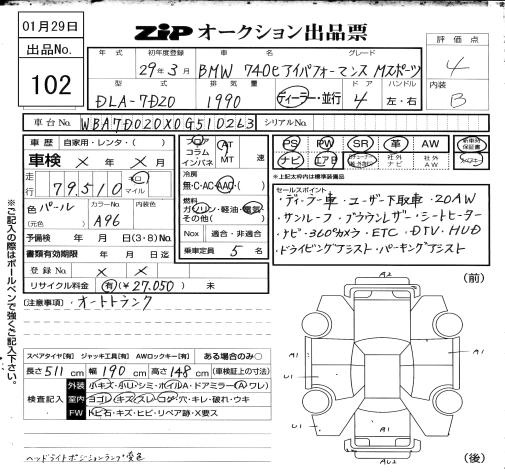 01月29日
出品No.
102
ZiP オークション出品票
年式 初年度登録 車名 グレード
29年3月 BMW 740e アイパフォーマンス Mスポーツ
型式 排気量 ドア ハンドル
DLA-7D20 1990 ディーラー・並行 4 左・右
評価点
4
内装
B
車台No. WBA7D020X0G510263 シリアルNo.
車歴 自家用・レンタ・( )
車検 × 年 × 月
走行 79,510 km マイル
色 パール カラーNo. 内装色
(元色) A96
予備検 年 月 日(3・8)No.
書類有効期限 年 月 日迄
登録No. × ×
リサイクル料金 有(¥27,050) 未
フロア コラム インパネ AT MT 速
冷房
無・C・AC・AAC
燃料
ガソリン・軽油・電気 その他( )
Nox 適合・非適合
乗車定員 5 名
PS PW SR 革 AW 新車時保証書
ナビ エアB 社外ナビ 社外AW
*上記太枠内は標準装備品
セールスポイント
・ディーラー車・ユーザー下取車・20AW
・サンルーフ・ブラウンレザー・シートヒーター
・ナビ・360°カメラ・ETC・DTV・HUD
・ドライビングアシスト・パーキングアシスト
[注意事項] ・オートトランク
スペアタイヤ[有] ジャッキ工具[有] AWロックキー[有] ある場合のみ○
長さ511cm 幅190cm 高さ148cm (車検証上の寸法)
検査記入
外装 小キズ・小U・シミ・ホイルA・ドアミラー(A・ワレ)
室内 ヨゴレ・キズ・スレ・コゲ・穴・キレ・破れ・ウキ
FW トビ石・キズ・ヒビ・リペア跡・X要ス
ヘッドライトポジションランプ変色
※ご記入の際はボールペンで強くご記入下さい。
(前)
A2
A1
A1
U1
U1
A1
AU2
(後)